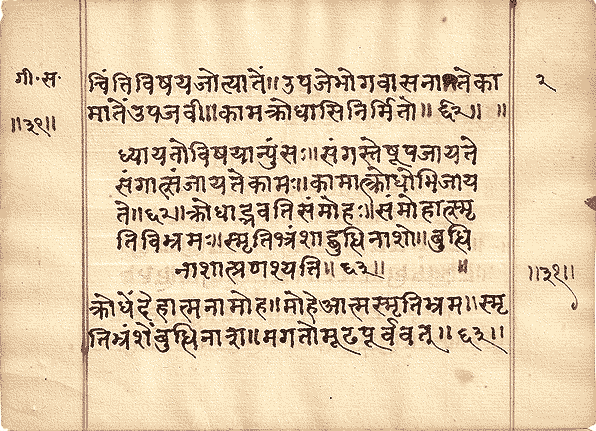 गी॰ स॰
॥३१॥
चिंत्ति विषय जो त्यातें॥ उपजे भोगवासना ते का
मातें उपजवी॥ काम क्रोधासि निर्मितो॥६२॥ ॥
२
ध्यायतो विषयान्पुंसः॥ संगस्तेषूपजायते
संगात्संजायते कामः॥ कामात्क्रोधोभिजाय
ते॥६२॥ क्रोधाद्भवति संमोहः॥ संमोहात्स्मृ
तिविभ्रमः॥ स्मृतिभ्रंशाद्बुद्धिनाशो॥ बुद्धि
नाशात्प्रणश्यति॥६३॥ ॥
॥३१॥
क्रोधें देहात्मना मोह॥ मोहे आत्मस्मृतिभ्रम॥ स्मृ
तिभ्रंशें बुद्धिनाश॥ मग तो मूढ पूर्ववत्॥६३॥